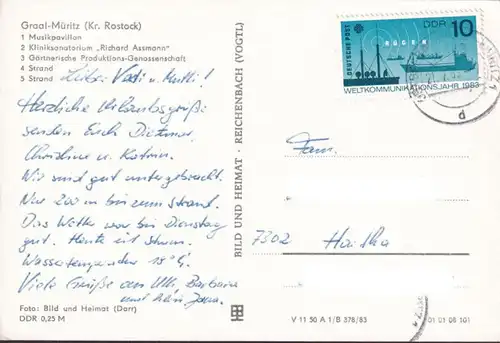 Graal-Müritz (Kr. Rostock)
1 Musikpavillon
2 Kliniksanatorium „Richard Assmann"
3 Gärtnerische Produktions-Genossenschaft
4 Strand
5 Strand
Liebe Vati u. Mutti!
Herzliche Urlaubsgrüße
senden Euch Dietmar,
Christine u. Katrin.
Wir sind gut untergebracht.
Nur 200 m bis zum Strand.
Das Wetter war bis Dienstag
gut. Heute ist Sturm.
Wassertemperatur 18°C.
Viele Grüße an Ulli, Barbara
und klein Jana.
Foto: Bild und Heimat (Darr)
DDR 0,25 M
BILD UND HEIMAT · REICHENBACH (VOGTL)
DEUTSCHE POST
DDR 10
RÜGEN
WELTKOMMUNIKATIONSJAHR 1983
Fam.
7302 Hartha
V 11 50 A 1/B 378/83
01 01 06 101